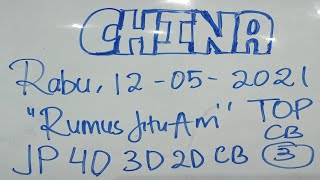 CHINA
Rabu, 12-05-2021
"Rumus Jitu Am" TOP
CB
JP 4D 3D 2D CB 3